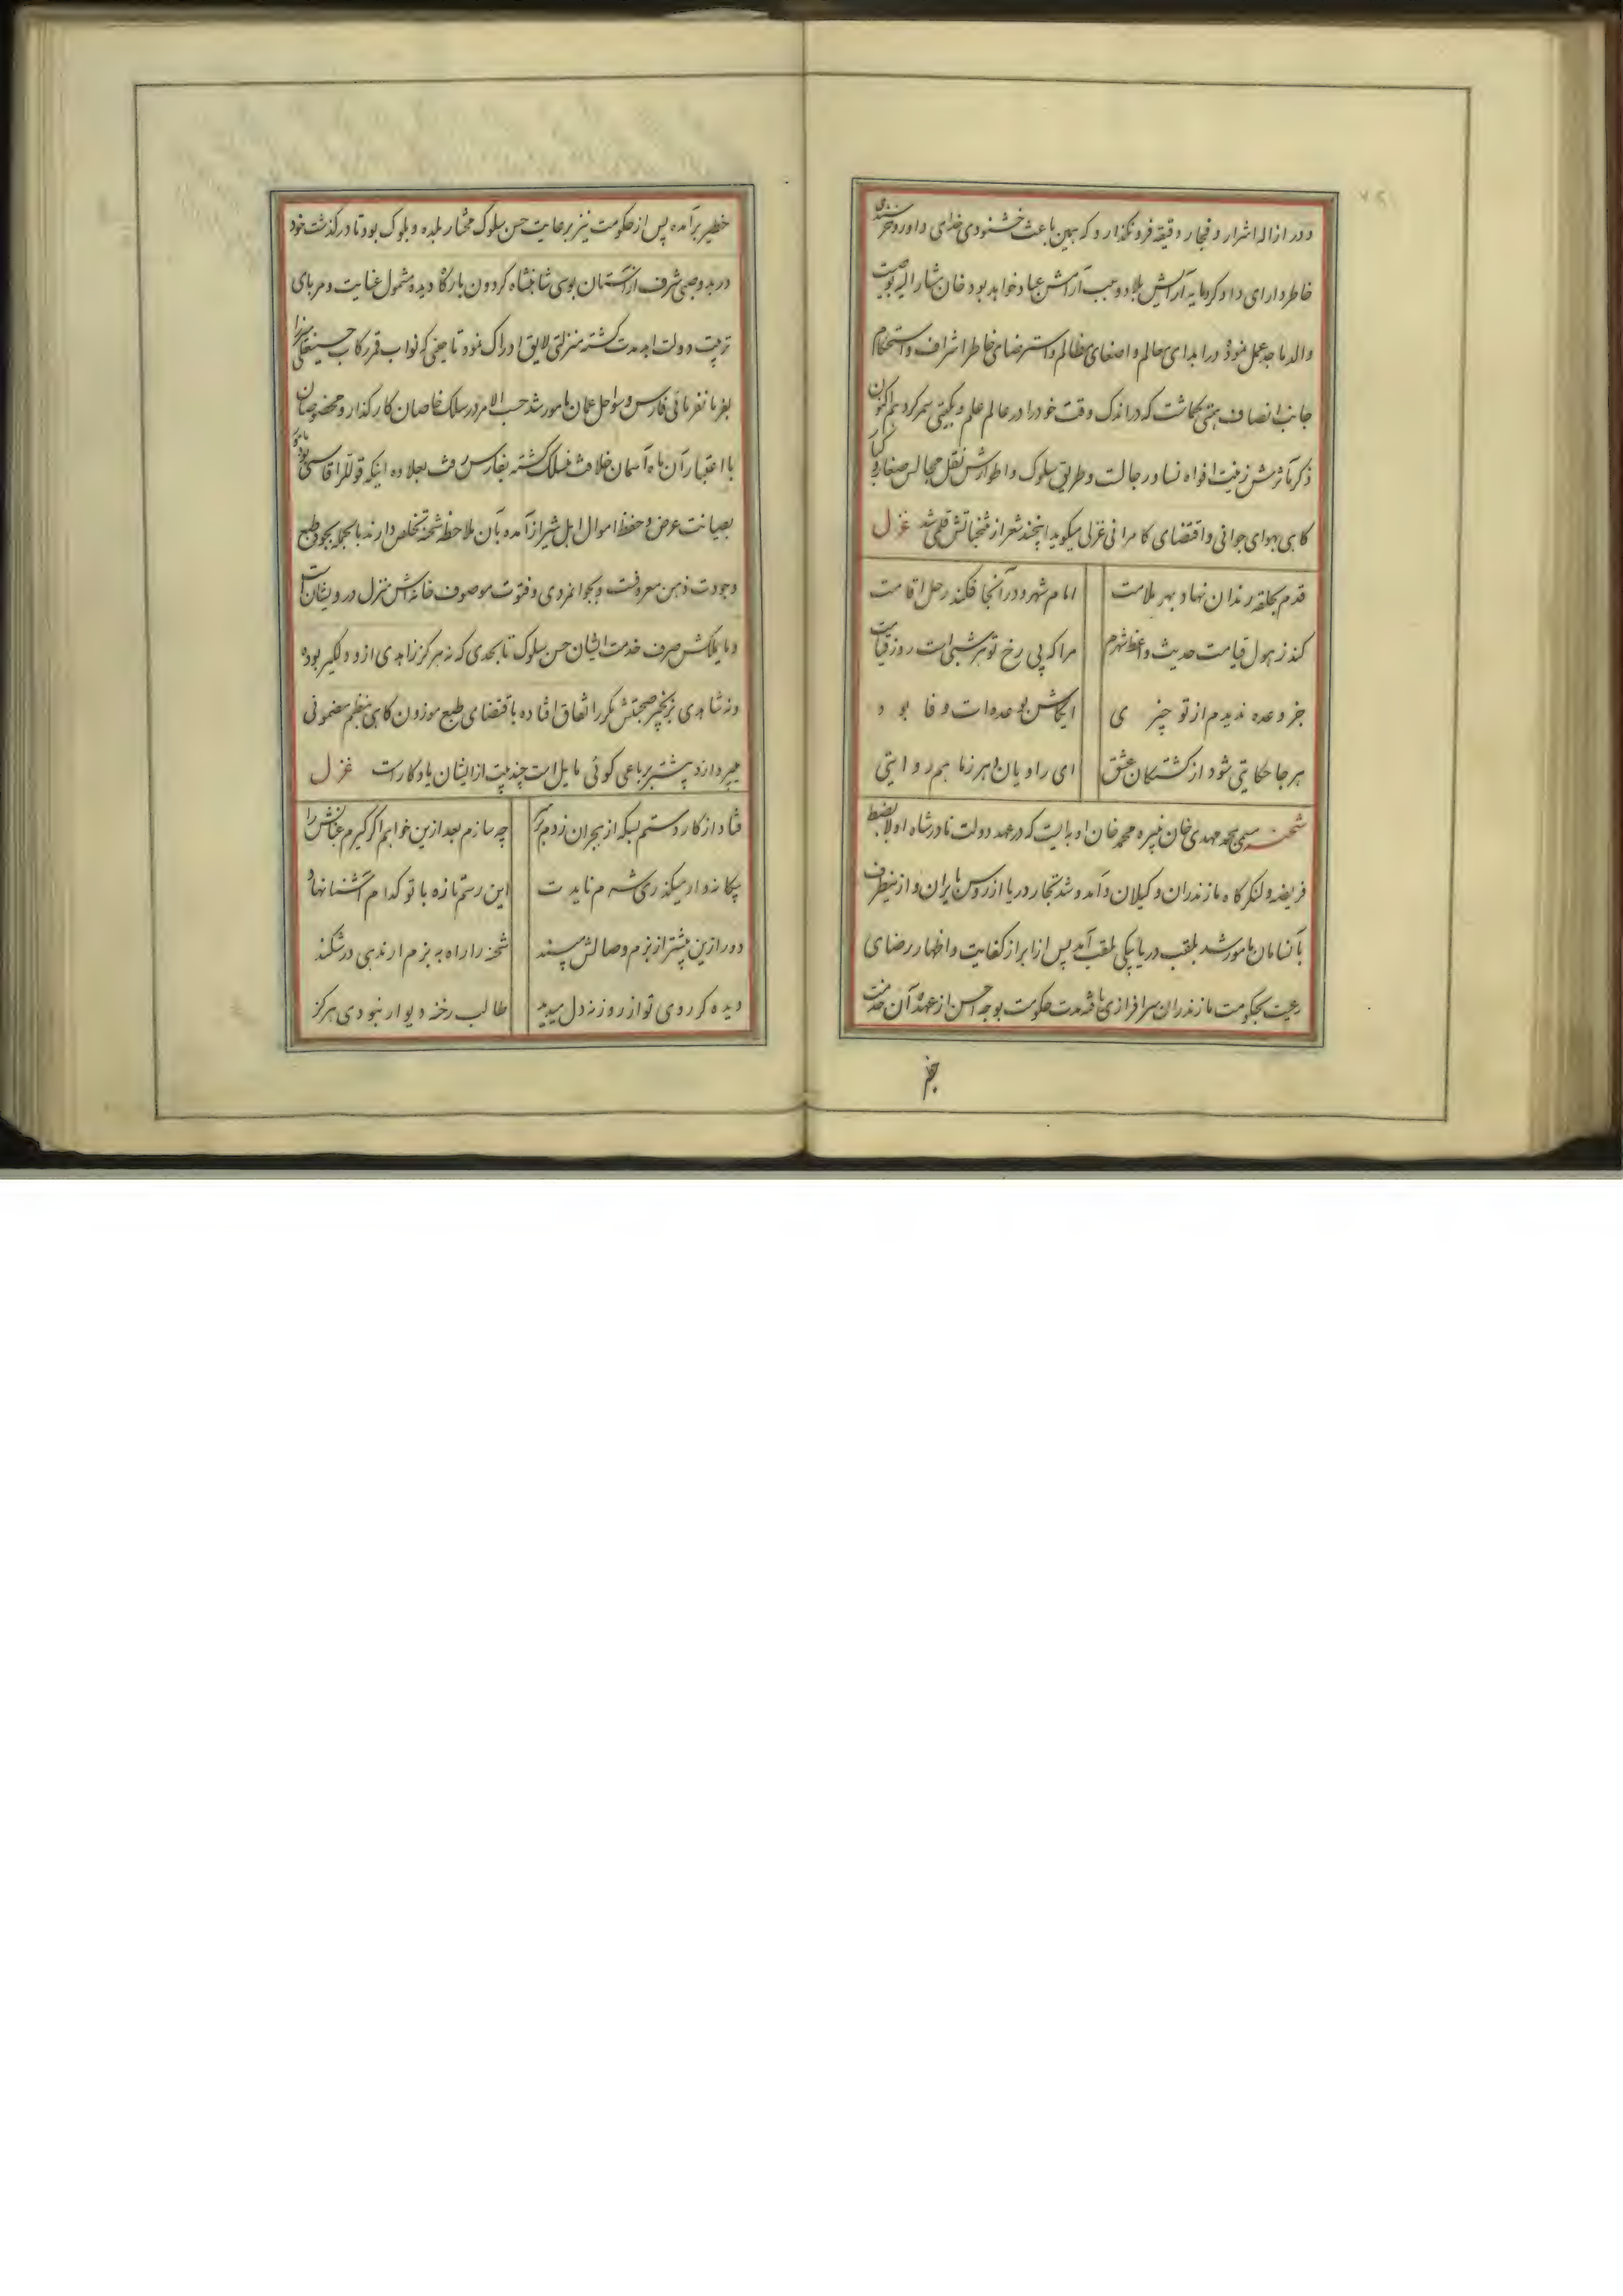 و در ازاله اشرار و فجار دقیقه فرو نگذارد که همین باعث خشنودی خدای داور و خرسندی
خاطر دارای دادگر و مایه آرایش بلاد و موجب آرامش عباد خواهد بود خان مشار الیه بوصیت
والد ماجد عمل نموده در ابدای معالم و اصغای مظالم و استرضای خاطر اشراف و استحکام
جانب انصاف همتی بگماشت که در اندک وقت خود را در عالم علم و یکیتی سمر کرد هم اکنون
ذکر مآثرش زینت افواه نسا و رجالست و طریق سلوک و اطوارش نقل مجالس صغار و کبار
گاهی بهوای جوانی و اقتضای کامرانی غزلی میگوید اینچند شعر از منتخباتش قلمی شد غزل
قدم بحلقه رندان نهاد بهر ملامت امام شهر و در آنجا فکند رحل اقامت
کند ز هول قیامت حدیث واعظ شهرم مرا که بی رخ تو هر شبی است روز قیامت
جز وعده ندیدم از تو چیزی ایکاش بوعده‌ات وفا بود
هر جا حکایتی شود از کشتگان عشق ای راویان ز ما هم روایتی
شحنه مسمی بمحمد مهدی خان نبیره محمد خان اوبه‌ایست که در عهد دولت نادرشاه اولا بضبط
فریضه و لنگرگاه مازندران و گیلان و آمد و شد تجار دریا از روس بایران و از اینطرف
بآنسامان مامور شد بلقب دریابیکی ملقب آمد پس از ابراز کفایت و اظهار رضای
رعیت بحکومت مازندران سرافرازی یافته مدت حکومت بوجه احسن از عهده آن خدمت
خطیر
خطیر برآمده پس از حکومت نیز برعایت حسن سلوک مختار بلده و بلوک بود تا درگذشت خود
در بدو صبی شرف از آستان بوسی شاهنشاه گردون بارگاه دیده مشمول عنایت و مربای
تربیت دولت ابد مدت گشته منزلتی لایق ادراک نمود تا حینی که نواب قمر رکاب حسینعلی میرزا
بفرمانفرمائی فارس و سواحل عمان مامور شد حسب الامر در سلک خاصان کارگذار و مخصوصان
با اعتبار آن ماه آسمان خلافت منسلک گشته بفارس رفت بعلاوه اینکه قوللر آقاسی بود
بصیانت عرض و حفظ اموال اهل شیراز آمده بآن ملاحظه شحنه تخلص دارند بالجمله بجود طبع
وجودت ذهن معروفست و بجوانمردی و فتوت موصوف خانه‌اش منزل درویشان است
و مایملکش صرف خدمت ایشان حسن سلوک تا بحدی که نه هرگز زاهدی از او دلگیر بوده
و نه شاهدی صحبتش مکرر اتفاق افتاده باقتضای طبع موزون گاهی بنظم مضمونی
میپردازد بیشتر برباعی گوئی مایل است چند بیت از ایشان یادگار است غزل
فتاد از کار دستم بسکه از هجران زدم بر سر چه سازم بعد ازین خواهم اگر گیرم عنانش را
بیگانه‌وار میگذری شرم نایدت این رسم تازه با تو کدام آشنا نهاد
دور ازین بیشتر از بزم وصالش مپسند شحنه را راه به بزم ار ندهی در شکند
دیده گر روی تو از روزنه دل میدید طالب رخنه دیوار نبودی هرگز